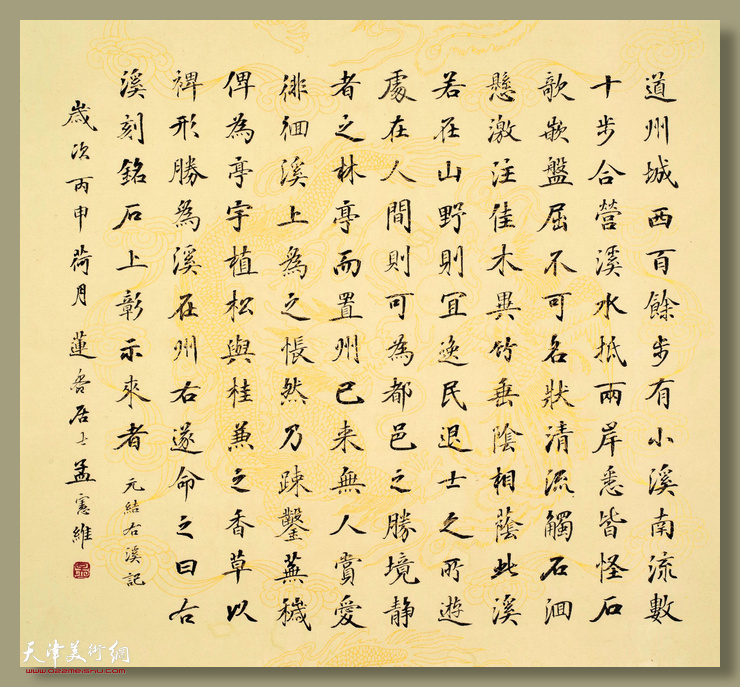 道州城西百餘步有小溪南流數
十步合營溪水抵兩岸悉皆怪石
欹嵌盤屈不可名狀清流觸石洄
懸激注佳木異竹垂陰相蔭此溪
若在山野則宜逸民退士之所遊
處在人間則可為都邑之勝境静
者之林亭而置州已来無人賞愛
徘徊溪上為之悵然乃疎鑿蕪穢
俾為亭宇植松與桂兼之香草以
裨形勝為溪在州右遂命之曰右
溪刻銘石上彰示來者 元結右溪記
歲次丙申荷月蓮香居士孟憲維
天津美術網
www.022meishu.com